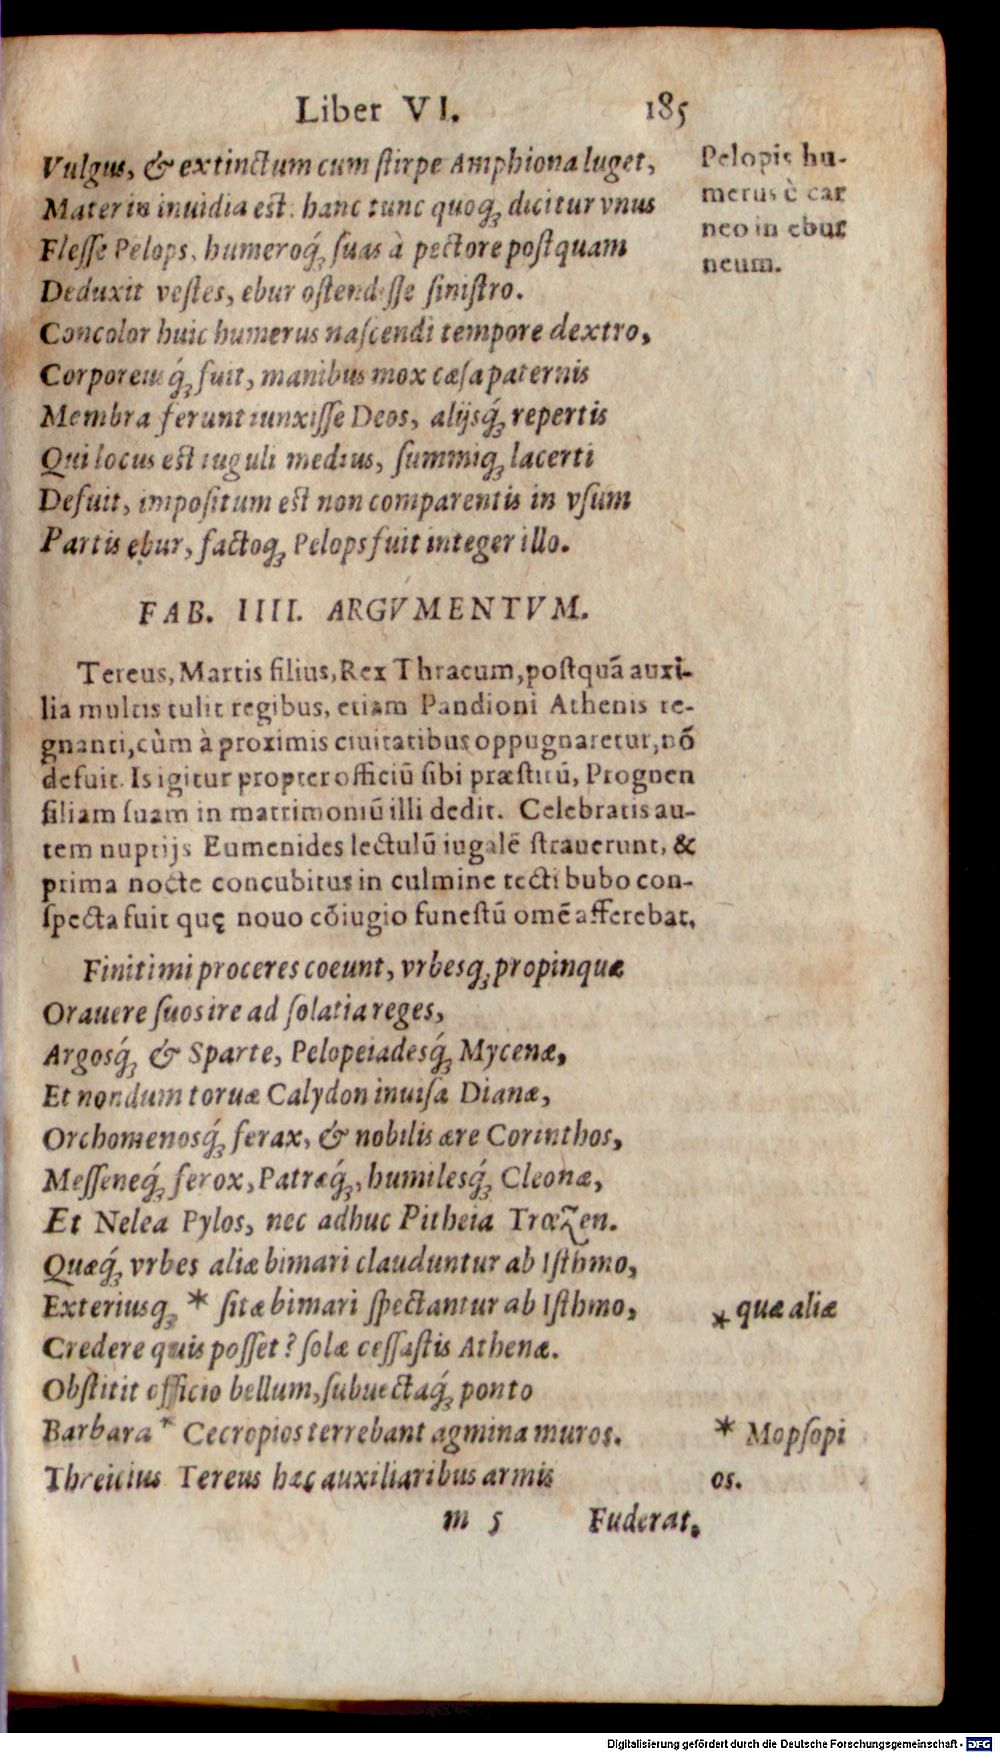 Liber VI. 185
Vulgus, & extinctum cum stirpe Amphiona luget,
Mater in inuidia est. hanc tunc quoq; dicitur vnus
Flesse Pelops, humeroq́; suas à pectore postquam
Deduxit vestes, ebur ostendisse sinistro.
Pelopis hu-
merus è car
neo in ebur
neum.
Concolor huic humerus nascendi tempore dextro,
Corporeusq́; fuit, manibus mox cæsa paternis
Membra ferunt iunxisse Deos, alijsq́; repertis
Qui locus est iuguli medius, summiq; lacerti
Defuit, impositum est non comparentis in vsum
Partis ebur, factoq; Pelops fuit integer illo.
FAB. IIII. ARGVMENTVM.
Tereus, Martis filius, Rex Thracum, postquã auxi-
lia multis tulit regibus, etiam Pandioni Athenis re-
gnanti, cùm à proximis ciuitatibus oppugnaretur, nõ
defuit. Is igitur propter officiũ sibi præstitũ, Prognen
filiam suam in matrimoniũ illi dedit. Celebratis au-
tem nuptijs Eumenides lectulũ iugalẽ strauerunt, &
prima nocte concubitus in culmine tecti bubo con-
specta fuit quę nouo cõiugio funestũ omẽ afferebat.
Finitimi proceres coeunt, vrbesq; propinquæ
Orauere suos ire ad solatia reges,
Argosq́; & Sparte, Pelopeiadesq́; Mycenæ,
Et nondum toruæ Calydon inuisa Dianæ,
Orchomenosq́; ferax, & nobilis ære Corinthos,
Messeneq́; ferox, Patræq́;, humilesq́; Cleonæ,
Et Nelea Pylos, nec adhuc Pitheia Trœzen.
Quæq́; vrbes aliæ bimari clauduntur ab Isthmo,
Exteriusq; * sitæ bimari spectantur ab Isthmo,
* quæ aliæ
Credere quis posset? solæ cessastis Athenæ.
Obstitit officio bellum, subuectaq́; ponto
Barbara * Cecropios terrebant agmina muros.
* Mopsopi
os.
Threicius Tereus hæc auxiliaribus armis
m 5 Fuderat,
Digitalisierung gefördert durch die Deutsche Forschungsgemeinschaft - DFG